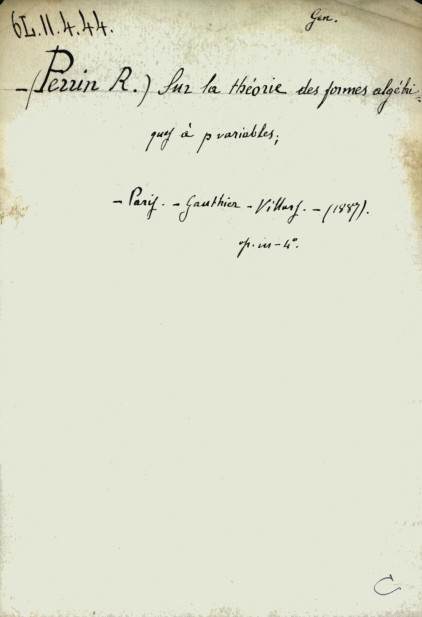 6L.11.4.44.
Gen.
-(Perrin R.) Sur la théorie des formes algébri-
ques à p variables;
- Paris. - Gauthier - Villars. - (1887).
op. in-4°.
C